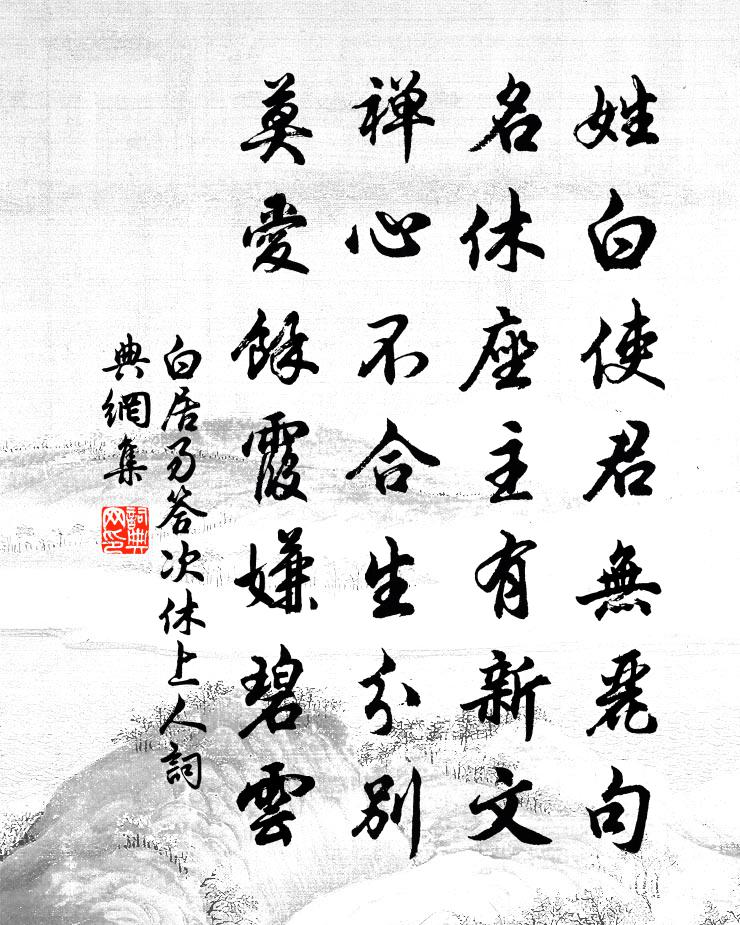 姓白使君無麗句
名休座主有新文
禅心不合生分別
莫愛餘霞嫌碧雲
白居易答次休上人詞
典網集
詞典
网印